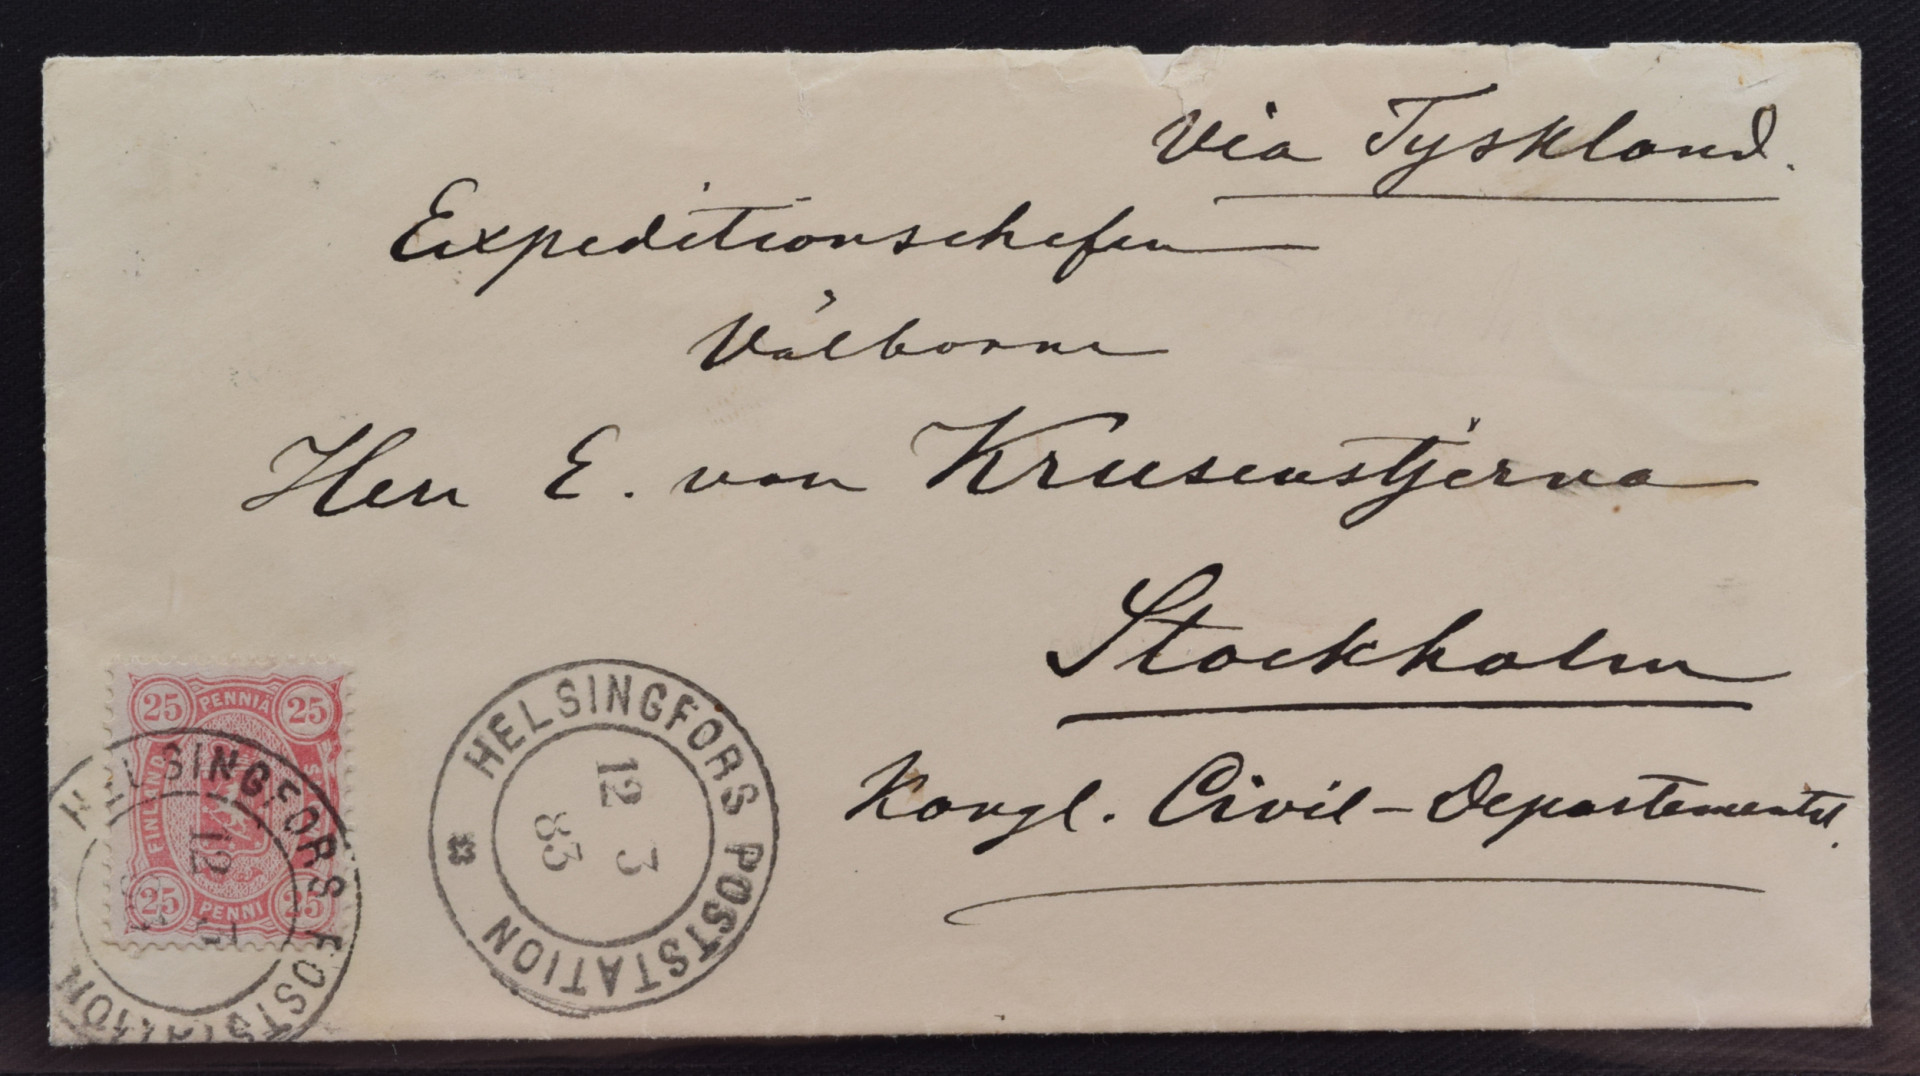 Via Tyskland.
Expeditionschefen
Välborne
Herr E. von Krusenstjerna
Stockholm
Kongl. Civil-Departementet.
25 PENNIÄ 25
FINLAND
25 PENNI 25
HELSINGFORS POSTSTATION
12 3
83
HELSINGFORS POSTSTATION
12 3
83